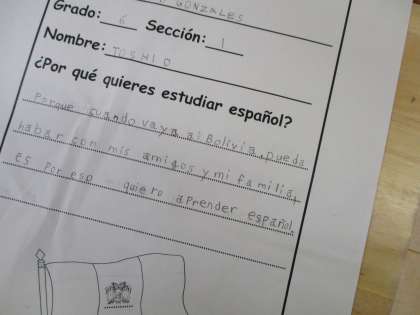 GONZALES
Grado: 6 Sección: 1
Nombre: TOSHIO
¿Por qué quieres estudiar español?
Porque cuando vaya a Bolivia, pueda
habar con mis amigos y mi familia,
es por esp quiero aprender español.